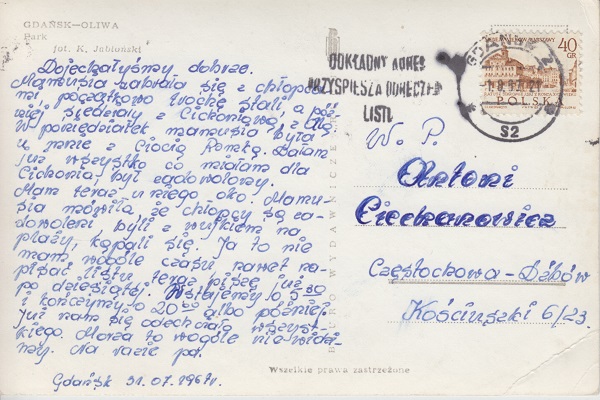 GDAŃSK—OLIWA
Park
fot. K. Jabłoński
Dojechałyśmy dobrze.
Mamusia zabrała się z chłopca-
mi początkowo trochę stali, a póź-
niej siedziały z Cichoniową, z Alą
W poniedziałek mamusia była
u mnie z Ciocią Romką. Dałam
już wszystko co miałam dla
Cichonia, był zadowolony.
Mam teraz u niego oko. Mamu-
sia mówiła, że chłopcy są za-
dowoleni byli z wujkiem na
plaży, kąpali się. Ja to nie
mam wogóle czasu nawet na-
pisać listu, teraz piszę już
po dziesiątej. Wstajemy o 5 30
i kończymy o 20 00 albo później.
Już nam się odechciało wszyst-
kiego. Morza to wogóle nie widzi-
my. Na razie pa.
Gdańsk 31.07.1967r.
DOKŁADNY ADRES
PRZYSPIESZA DORĘCZEN
LISTU
GDAŃSK 2
S2
40
GR
POLSKA
W. P.
Antoni
Ciechanowicz
Częstochowa-Dźbów
Kościuszki 6/23
Wszelkie prawa zastrzeżone